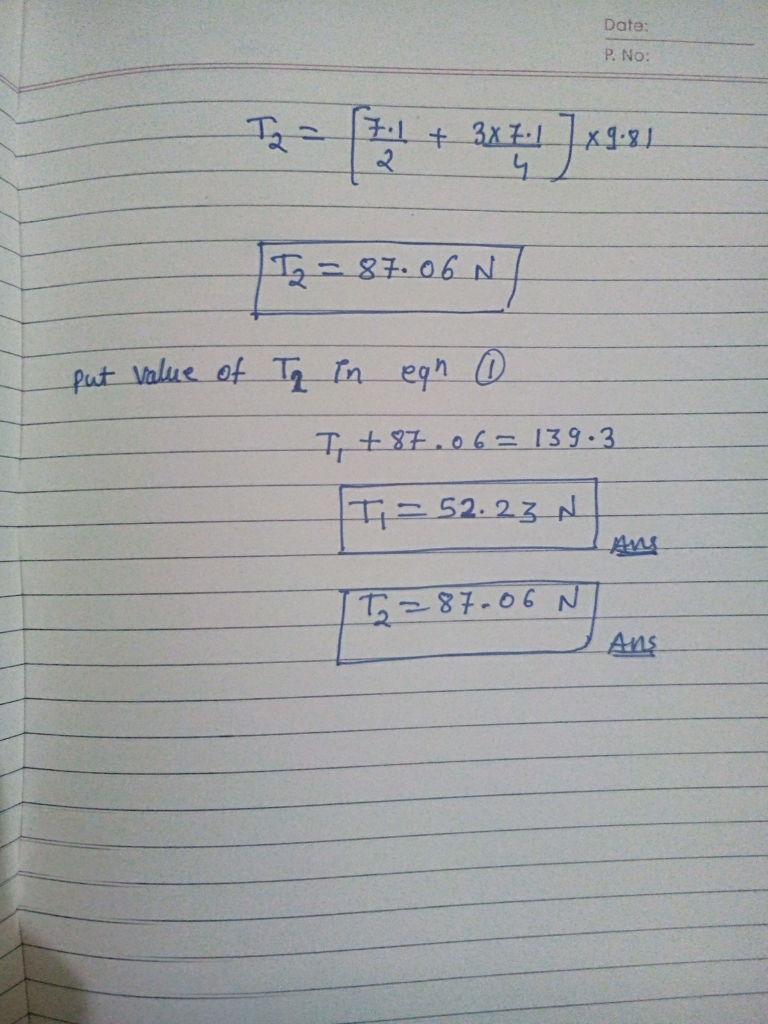 Date:
P. No:
T₂ = [7.1/2 + 3x7.1/4] x9.81
T₂ = 87.06 N
put value of T₂ in eqn ①
T₁ + 87.06 = 139.3
T₁ = 52.23 N
Ans
T₂ = 87.06 N
Ans